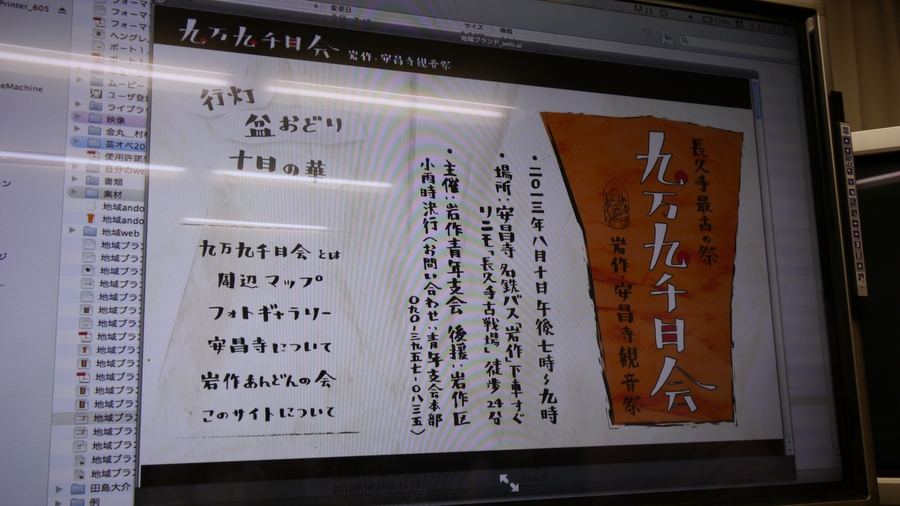 Printer_605
eMachine
変更日
サイズ
種類
地域ブランド_web.ai
フォーマ
フォーマ
ヘングレ
ポート
ムービー
ユーザ登
ライブラ
映像
金丸_村
芸オペ20
使用許諾
自分のwe
書類
素材
地域ando
地域ando
地域web
地域ブラ
地域ブラ
地域ブラ
地域ブラ
地域ブラ
地域ブラ
地域ブラ
地域ブラ
地域ブラ
地域ブラ
地域ブラ
地域ブラ
田島大介
例
九万九千日会 岩作・安昌寺観音祭
行灯
盆おどり
十日の華
九万九千日会とは
周辺マップ
フォトギャラリー
安昌寺について
岩作あんどんの会
このサイトについて
長久手最古の祭
九万九千日会
岩作・安昌寺観音祭
・二〇一三年八月十日 午後七時〜九時
・場所：安昌寺 名鉄バス「岩作」下車すぐ
リニモ「長久手古戦場」徒歩24分
・主催：岩作青年支会 後援：岩作区
小雨時決行〈お問い合わせ：青年支会本部
〇九〇-三九五七-〇八三五〉